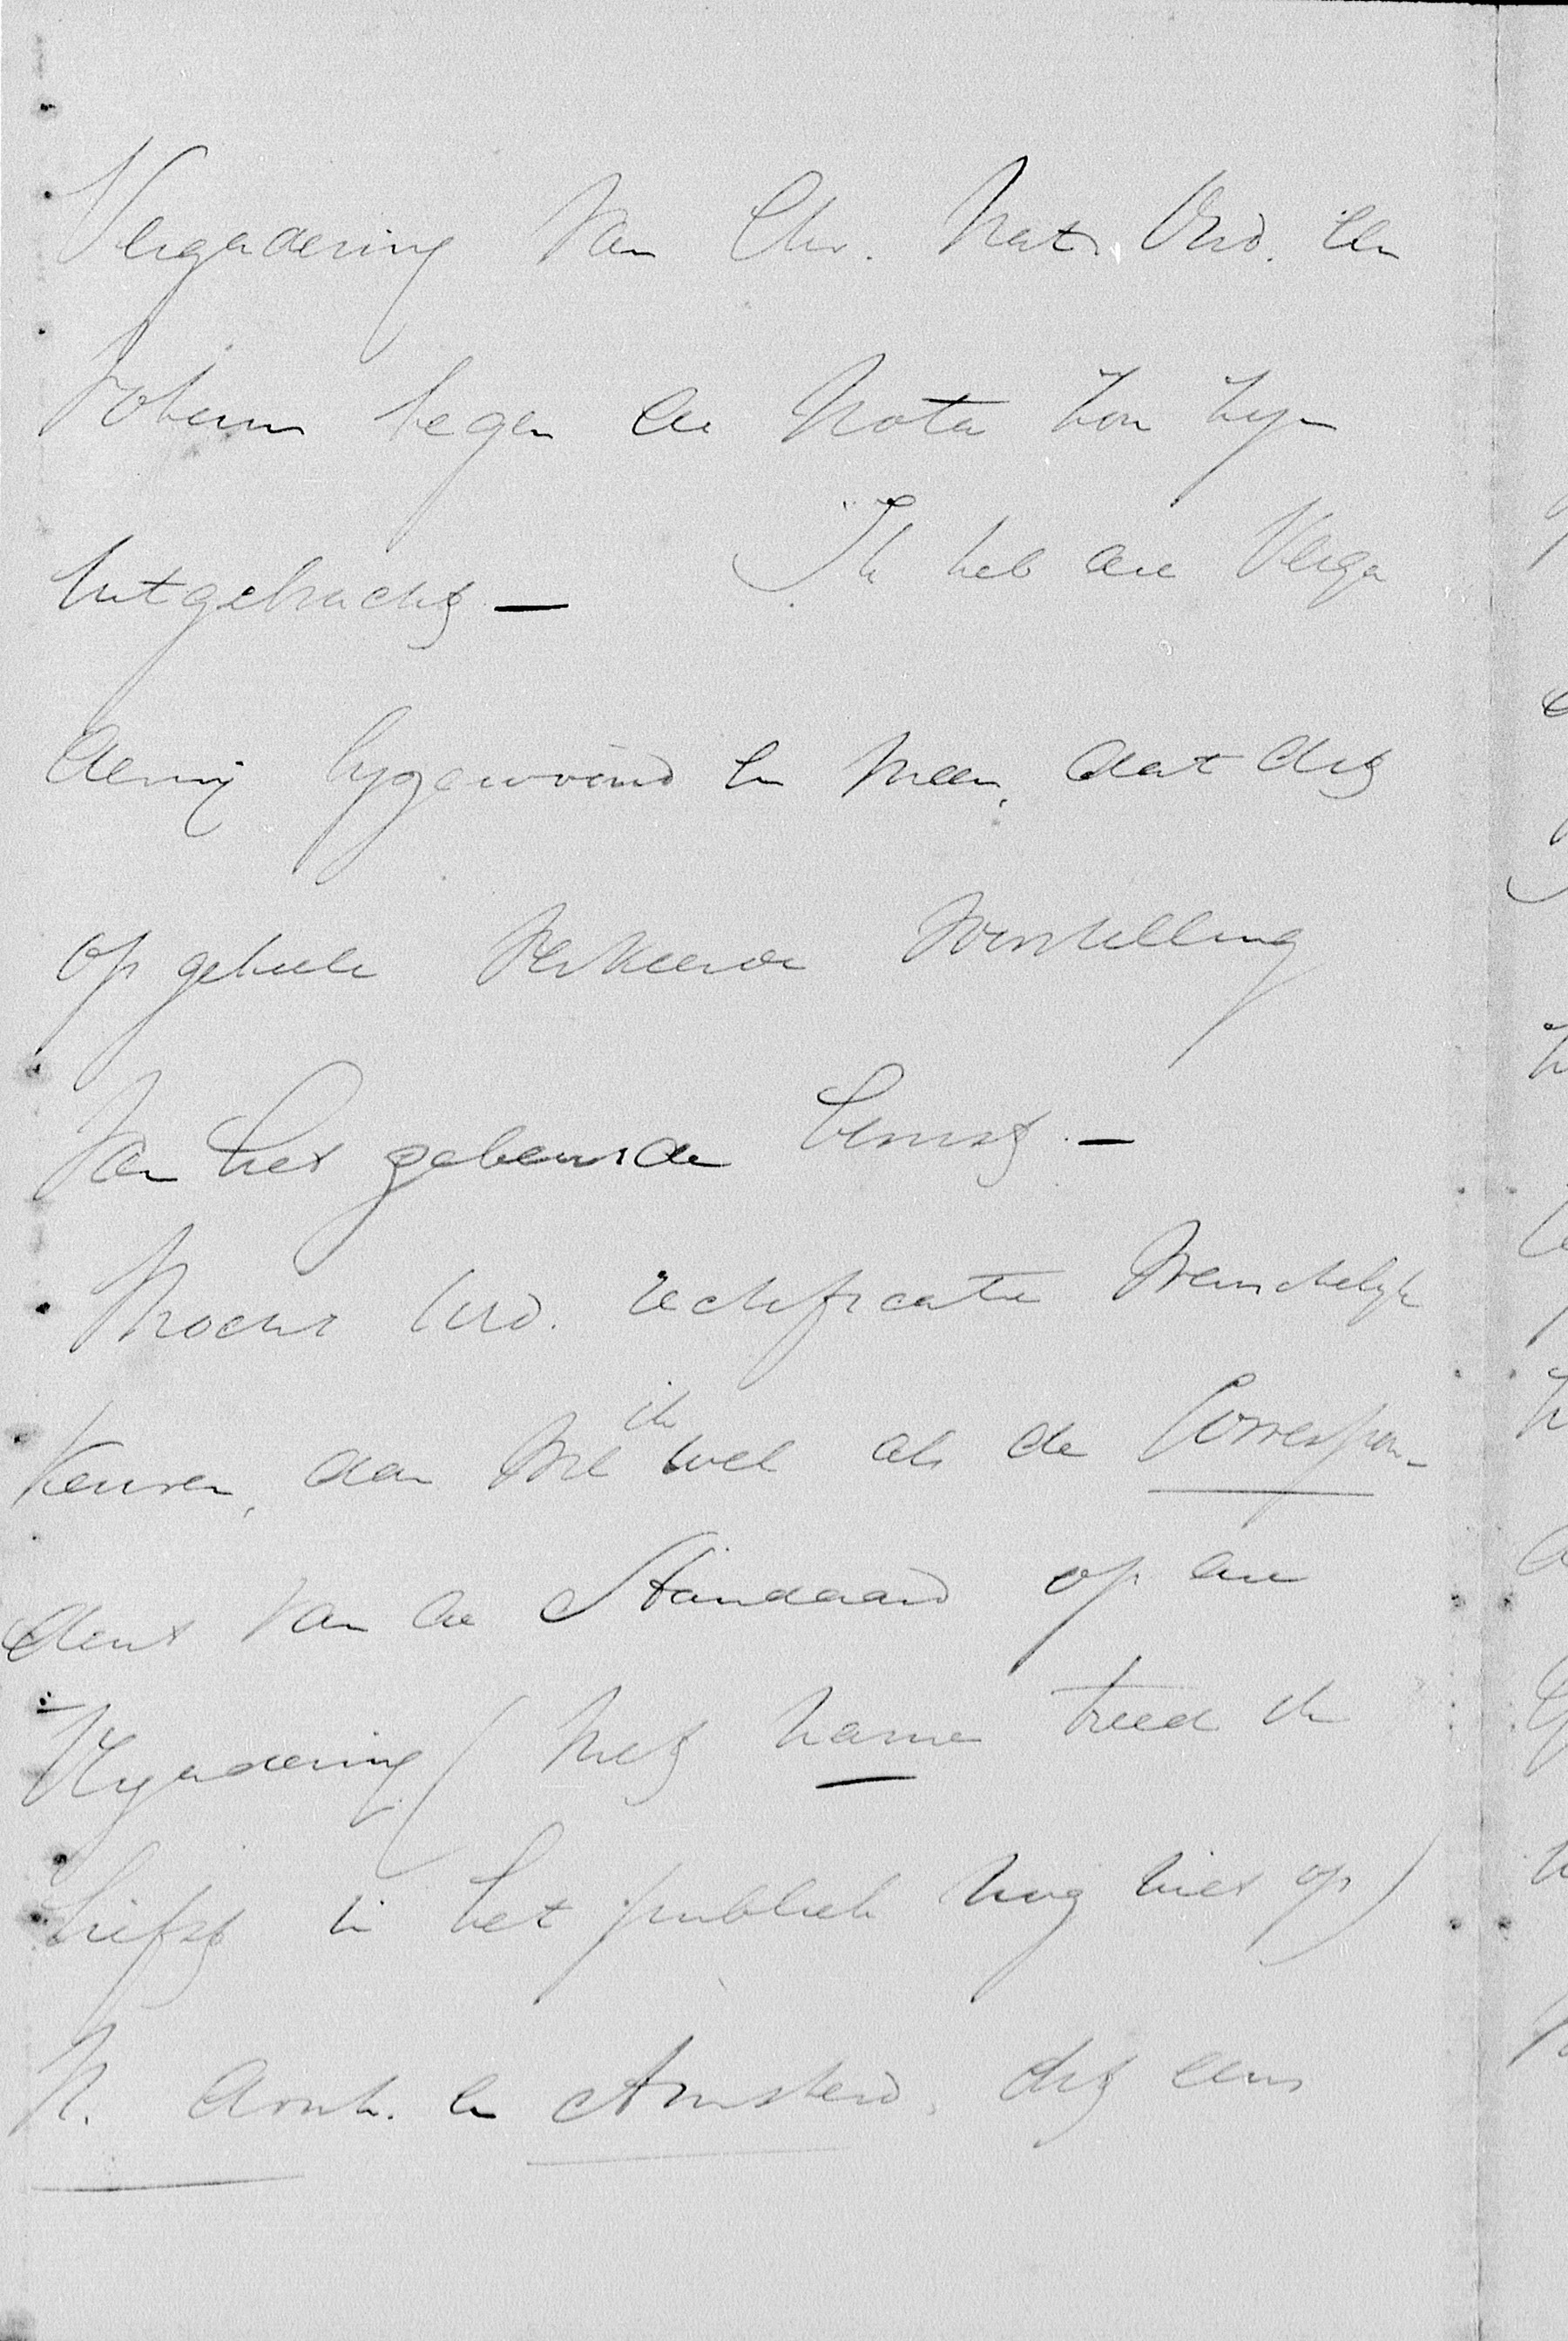 Vergadering van Chr. Nat. Ond. een
votum tegen de Nota zou zijn
uitgebracht — Ik heb die Verga
dering bijgewoond en meen, dat dit
op geheele verkeerde voorstelling
van het gebeurde berust. —
Mocht Uwd. rectificatie wenschelijk
keuren, dan wil ik wel als de Correspon-
dent van de Standaard op die
Vergadering (met name treed ik
liefst in het publiek nog niet op)
N. Arnh. en Amsterd. dit eens